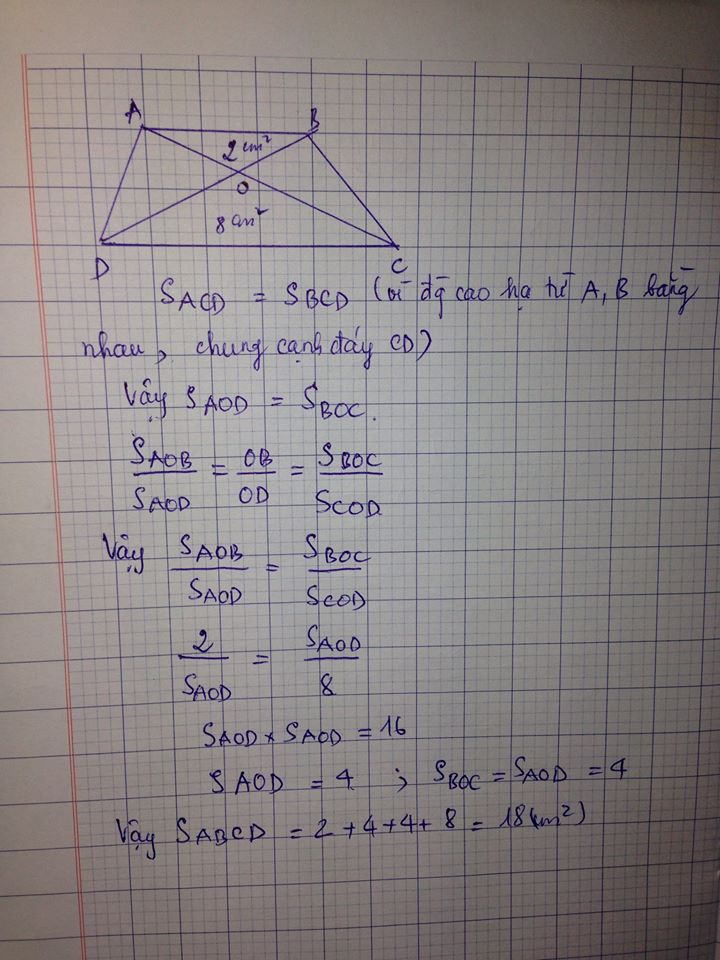 A B
2 cm²
O
8 cm²
D C
S_ACD = S_BCD (vì đg cao hạ từ A, B bằng
nhau, chung cạnh đáy CD)
Vậy S_AOD = S_BOC.
S_AOB / S_AOD = OB / OD = S_BOC / S_COD
Vậy S_AOB / S_AOD = S_BOC / S_COD
2 / S_AOD = S_AOD / 8
S_AOD × S_AOD = 16
S_AOD = 4 ; S_BOC = S_AOD = 4
Vậy S_ABCD = 2 + 4 + 4 + 8 = 18 (cm²)